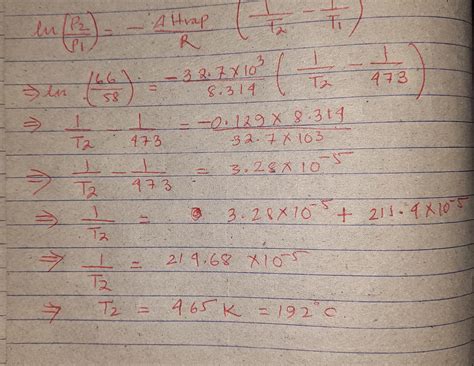 ln(P2/P1) = - ΔHvap/R (1/T2 - 1/T1)
⇒ ln (66/58) = -32.7×10³/8.314 (1/T2 - 1/473)
⇒ 1/T2 - 1/473 = -0.129 × 8.314/32.7×103
⇒ 1/T2 - 1/473 = 3.28×10⁻⁵
⇒ 1/T2 = 3.28×10⁻⁵ + 211.4×10⁻⁵
⇒ 1/T2 = 214.68 ×10⁻⁵
⇒ T2 = 465 K = 192°C.